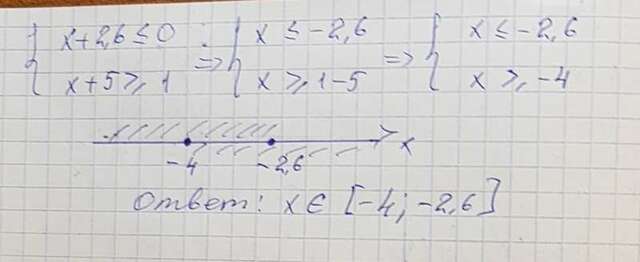 { x+2,6 ≤ 0 ; => { x ≤ -2,6 => { x ≤ -2,6
x+5 ≥ 1 x ≥ 1-5 x ≥ -4
-4 -2,6 x
Ответ: x ∈ [-4; -2,6]